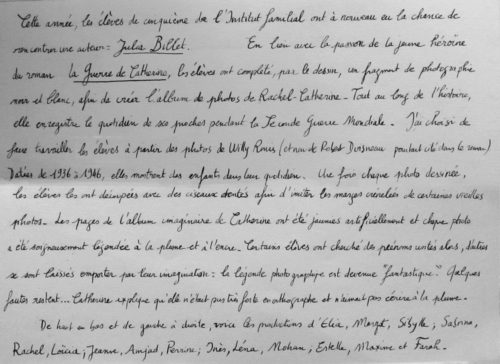 Cette année, les élèves de cinquième de l'Institut familial ont à nouveau eu la chance de
rencontrer une auteure : Julia Billet. En lien avec la passion de la jeune héroïne
du roman La Guerre de Catherine, les élèves ont complété, par le dessin, un fragment de photographie
noir et blanc, afin de créer l'album de photos de Rachel-Catherine. Tout au long de l'histoire,
elle enregistre le quotidien de ses proches pendant la Seconde Guerre Mondiale. J'ai choisi de
faire travailler les élèves à partir des photos de Willy Ronis (et non de Robert Doisneau pourtant cité dans le roman)
Datées de 1936 à 1946, elles montrent des enfants dans leur quotidien. Une fois chaque photo dessinée,
les élèves les ont découpées avec des ciseaux dentés afin d'imiter les marges crénelées de certaines vieilles
photos. Les pages de l'album imaginaire de Catherine ont été jaunies artificiellement et chaque photo
a été soigneusement légendée à la plume et à l'encre. Certains élèves ont cherché des prénoms usités alors, d'autres
se sont laissés emporter par leur imagination : la légende photographique est devenue "fantastique". Quelques
fautes restent... Catherine explique qu'elle n'était pas très forte en orthographe et n'aimait pas écrire à la plume.
De haut en bas et de gauche à droite, voici les productions d'Elia, Margot, Sibylle, Sabrina,
Rachel, Loïcia, Jeanne, Amijad, Perrine, Inès, Léna, Mohan, Estelle, Maxime et Farah.